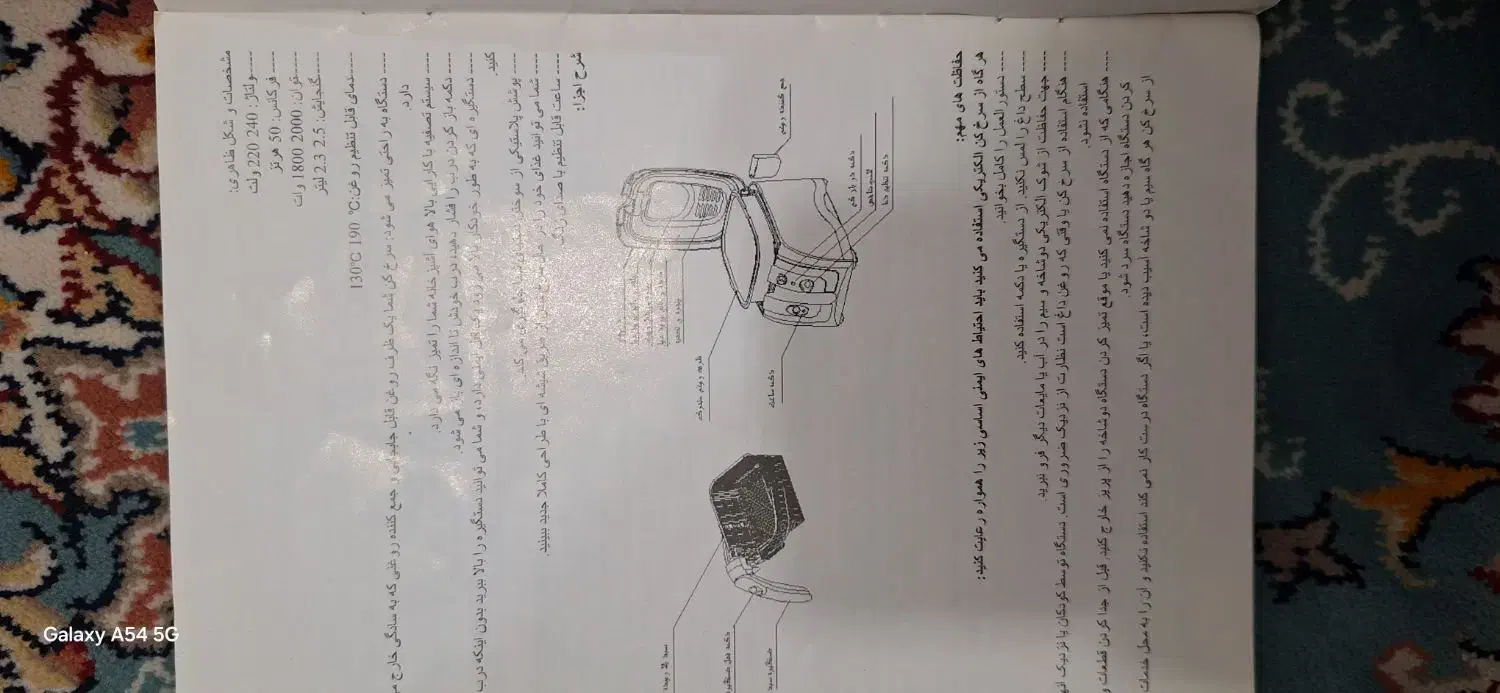 مشخصات و شکل ظاهری:
----ولتاژ: 240 220 ولت
---- فرکانس: 50 هرتز
----توان: 2000 1800 وات
----گنجایش: 2.5 2.3 لیتر
----دمای قابل تنظیم روغن:℃ 190 130℃
---- دستگاه به راحتی تمیز می شود: سرخ کن شما یک ظرف روغن قابل جابجایی و جمع کننده روغنی که به سادگی خارج
دارد.
---- سیستم تصفیه با کارایی بالا هوای آشپزخانه شما را تمیز نگه می دارد.
----دکمه باز کردن درب را فشار دهید، درب خودش تا اندازه ای باز می شود
---- دستگیره ای که به طور خودکار بالا می رود یک قفل ایمنی دارد، و شما می توانید دستگیره را بالا ببرید بدون اینکه درب
کنید.
---- پوشش پلاستیکی از سوختن جلوگیری می کند.
---- شما می توانید غذای خود را در حال سرخ شدن از طریق شیشه ای با طراحی کاملا جدید ببینید.
---- ساعت قابل تنظیم با صدای زنگ
شرح اجزا:
جمع کننده روغن
دکمه در باز کن
دکمه تنظیم دما
ظرف روغن متحرک
دکمه ساعت
دکمه قفل دستگیره
دستگیره سبد
حفاظت های مهم:
هر گاه از سرخ کن الکتریکی استفاده می کنید باید احتیاط های ایمنی اساسی زیر را همواره رعایت کنید:
---- دستور العمل را کامل بخوانید.
----سطح داغ را لمس نکنید. از دستگیره یا دکمه استفاده کنید.
---- جهت حفاظت از شوک الکتریکی دوشاخه و سیم را در آب یا مایعات دیگر فرو نبرید.
---- هنگام استفاده از سرخ کن یا وقتی که روغن داغ است نظارت از نزدیک ضروری است. دستگاه توسط کودکان یا نزدیک
استفاده نشود.
---- هنگامی که از دستگاه استفاده نمی کنید یا موقع تمیز کردن دستگاه دوشاخه را از پریز خارج کنید. قبل از جدا کردن قطعات و
کردن دستگاه اجازه دهید دستگاه سرد شود.
از سرخ کن هر گاه سیم یا دو شاخه آسیب دیده است، یا اگر دستگاه درست کار نمی کند استفاده نکنید و آن را به محل خدمات
Galaxy A54 5G